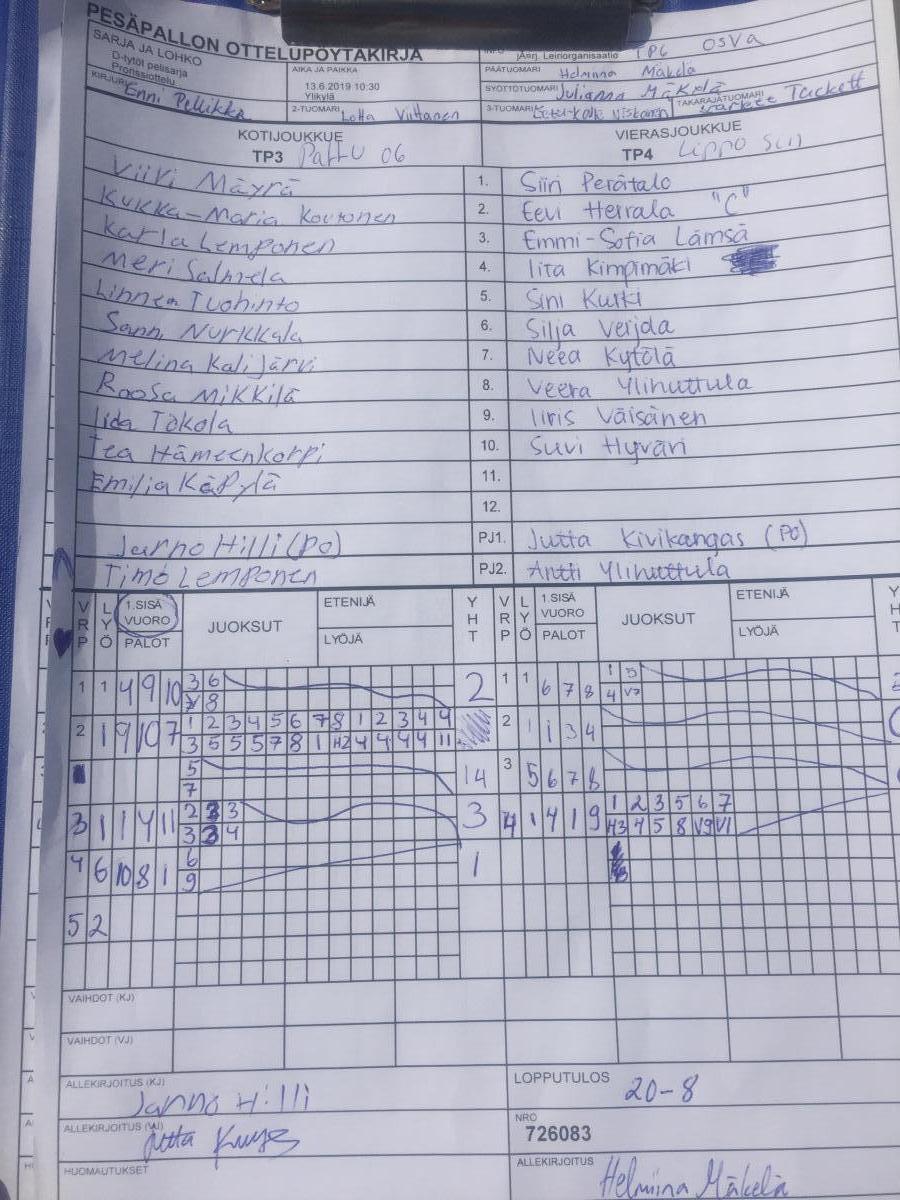 PESÄPALLON OTTELUPÖYTÄKIRJA
SARJA JA LOHKO
D-tytöt pelisarja
Pronssiottelu
INFO
jÄänj. Leiriorganisaatio TP6 OSVA
AIKA JA PAIKKA
13.6.2019 10:30
Ylikylä
PÄÄTUOMARI Helmiina Mäkelä
SYÖTTÖTUOMARI Julianna Mäkelä
KIRJURI Enni Pellikka
2-TUOMARI Lotta Viittanen
3-TUOMARI
TAKARAJATUOMARI Tackett
KOTIJOUKKUE
TP3 PattU 06
VIERASJOUKKUE
TP4 Lippo
Viivi Mäyrä 1. Siiri Perätalo
Kukka-Maria Koutonen 2. Eevi Herrala "C"
Karla Lemponen 3. Emmi-Sofia Lämsä
Meri Salmela 4. Iita Kimpimäki
Linnea Tuohinto 5. Sini Kurki
Sanni Nurkkala 6. Silja Verjda
Melina Kalijärvi 7. Neea Kytölä
Roosa Mikkilä 8. Veera Ylihuttula
Iida Tokola 9. Iiris Väisänen
Tea Hämeenkorpi 10. Suvi Hyväri
Emilia Käpylä 11.
12.
Jarno Hilli (PO) PJ1. Jutta Kivikangas (PO)
Timo Lemponen PJ2. Antti Ylihuttula
VRP LYÖ 1.SISÄ VUORO PALOT JUOKSUT ETENIJÄ LYÖJÄ YHT VRP LYÖ 1.SISÄ VUORO PALOT JUOKSUT ETENIJÄ LYÖJÄ YHT
1 1 4 9 10 3 6 2 1 1 6 7 8 1 5
8 4 V7
2 1 9 10 7 1 2 3 4 5 6 7 8 1 2 3 4 4 2 1 1 3 4
3 5 5 5 7 8 1 H2 4 4 4 4 11
5 14 3 5 6 7 8
7
3 1 1 4 11 2 3 3 3 4 1 4 1 9 1 2 3 5 6 7
3 3 4 H3 4 5 8 V9 V1
4 6 10 8 1 6 1
9
5 2
VAIHDOT (KJ)
VAIHDOT (VJ)
ALLEKIRJOITUS (KJ) Jarno Hilli
LOPPUTULOS 20-8
ALLEKIRJOITUS (VJ) Jutta
NRO
726083
HUOMAUTUKSET
ALLEKIRJOITUS Helmiina Mäkelä